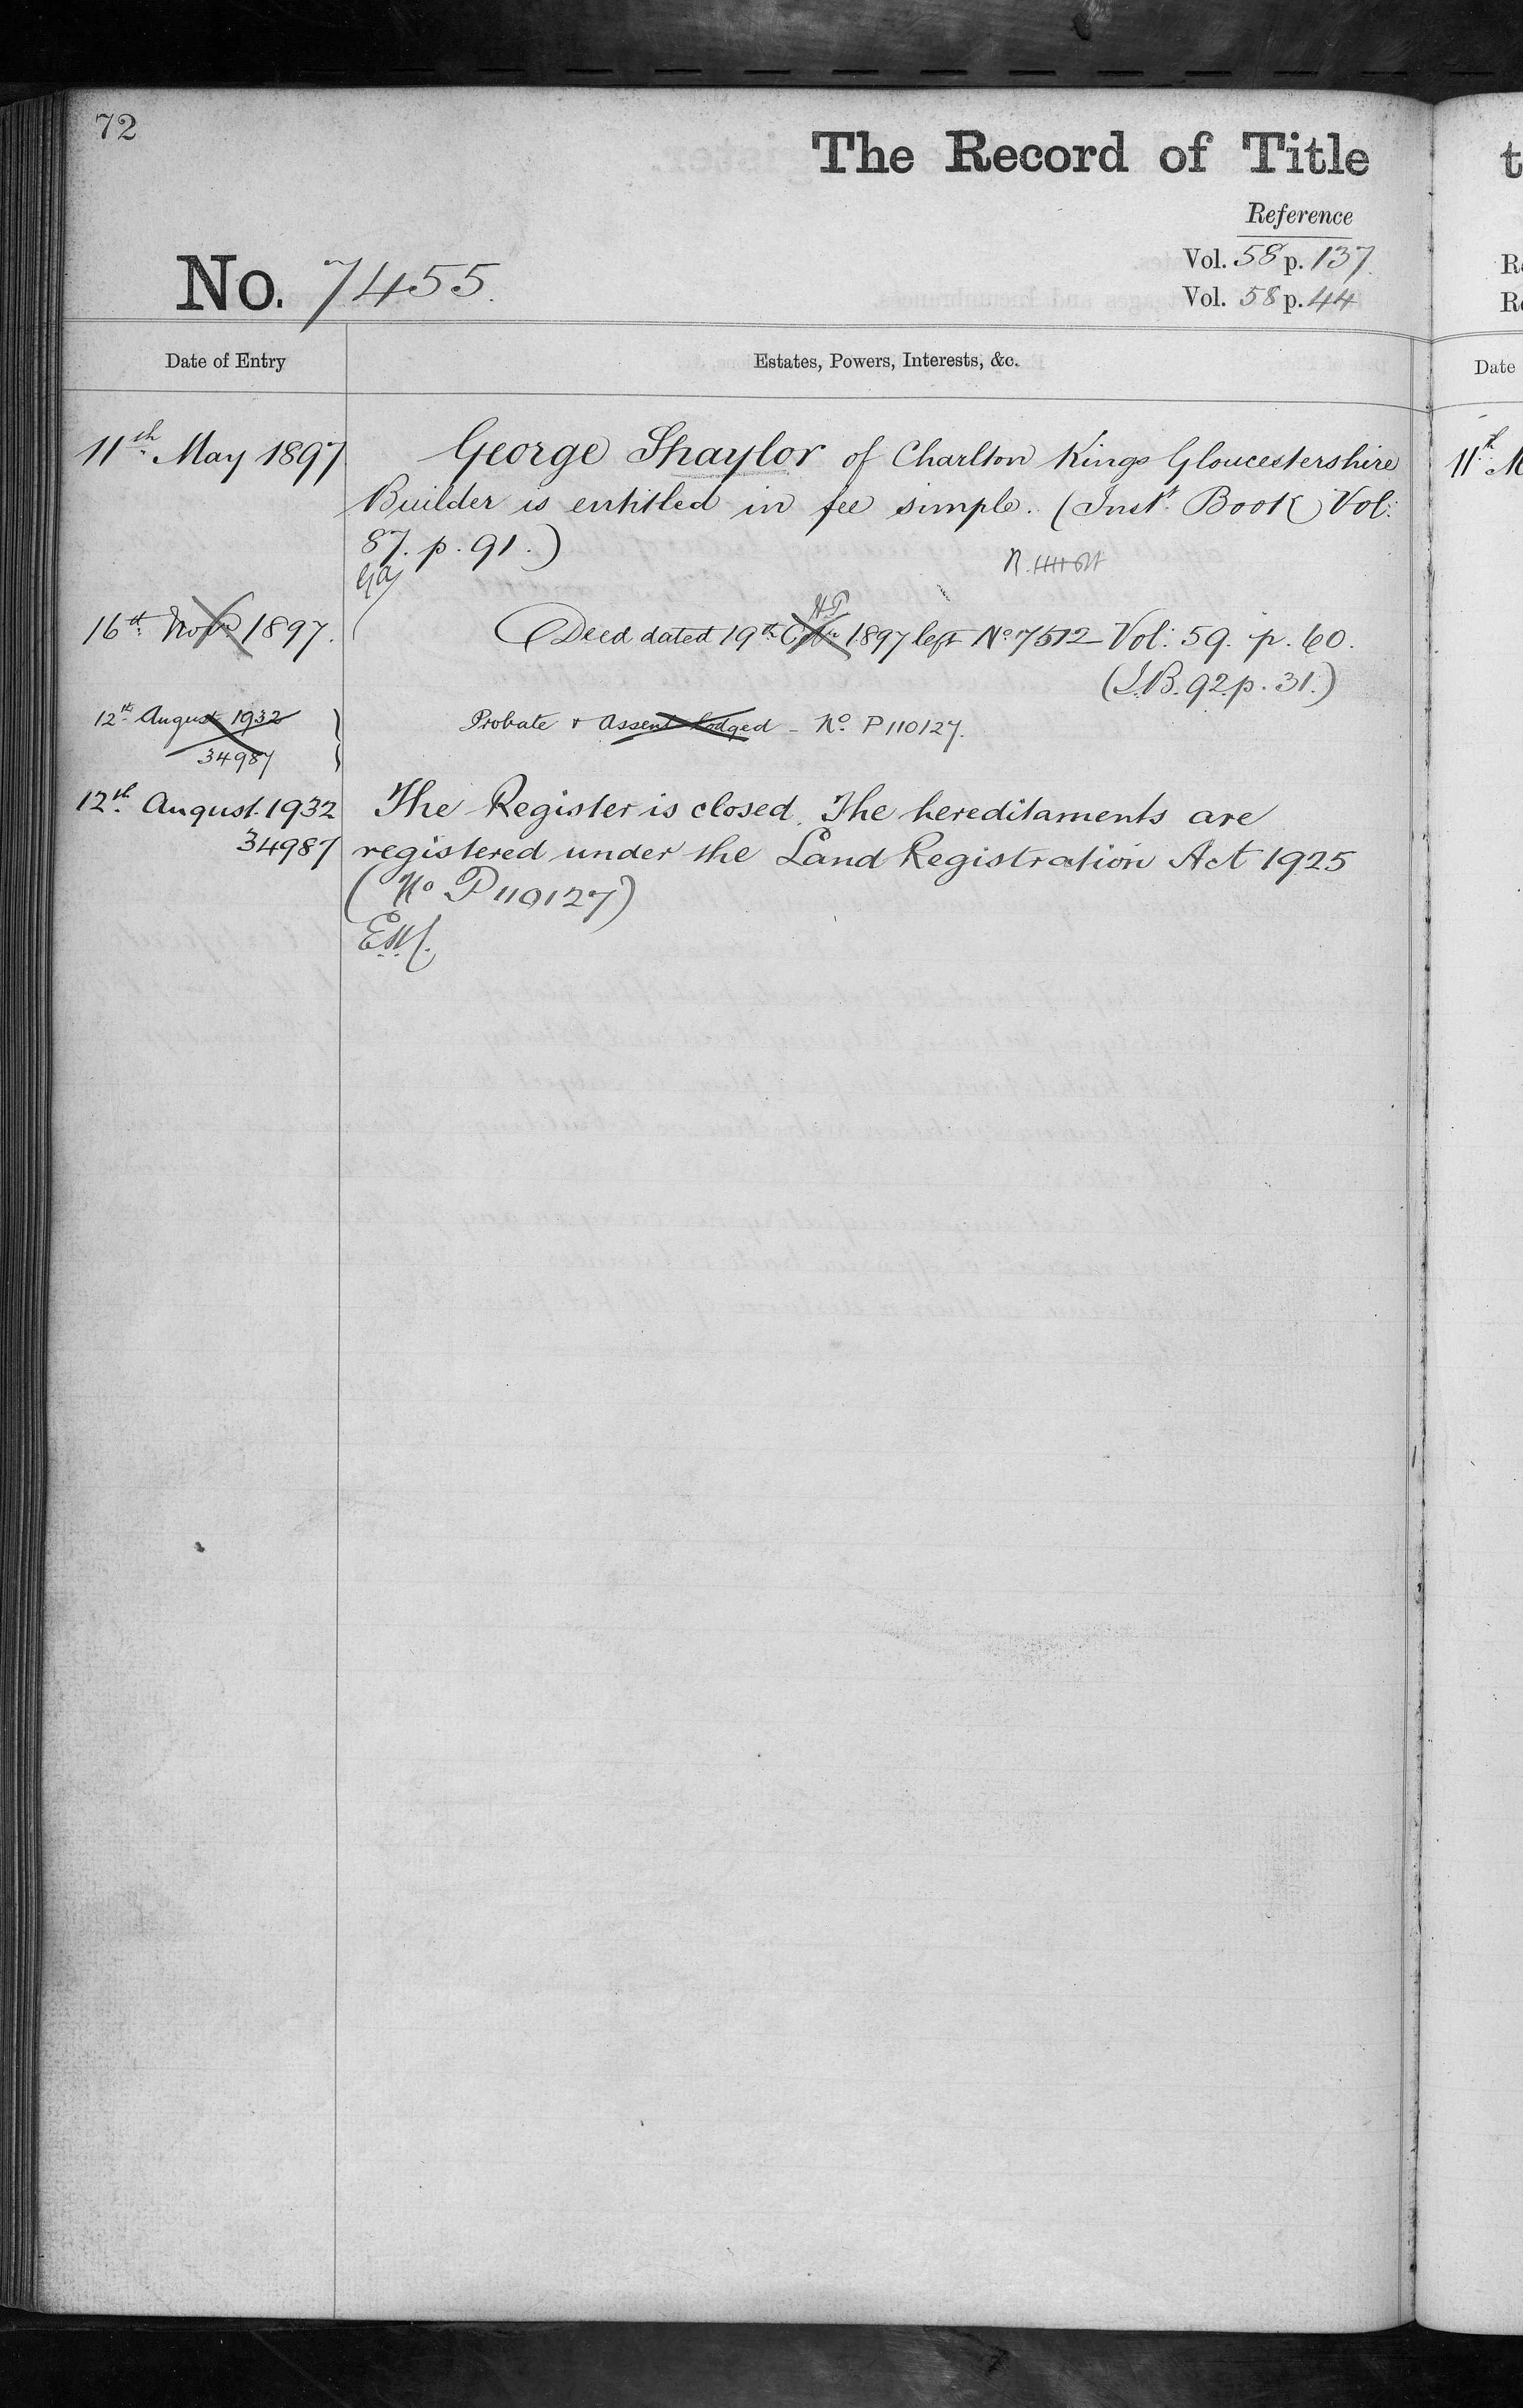 72
The Record of Title
Reference
Vol. 58 p. 137.
No. 7455.
Vol. 58 p. 44
Date of Entry
Estates, Powers, Interests, &c.
Date
11th May 1897
George Shaylor of Charlton Kings Gloucestershire
Builder is entitled in fee simple. (Inst. Book Vol:
87. p. 91.)
16th Novr 1897.
Deed dated 19th Octr 1897 left No 7512 Vol: 59. p. 60.
(I.B. 92 p. 31.)
12th August 1932
34987
Probate & Assent Lodged - No. P110127.
12th August 1932
34987
The Register is closed. The hereditaments are
registered under the Land Registration Act 1925
(No P110127)
11th M